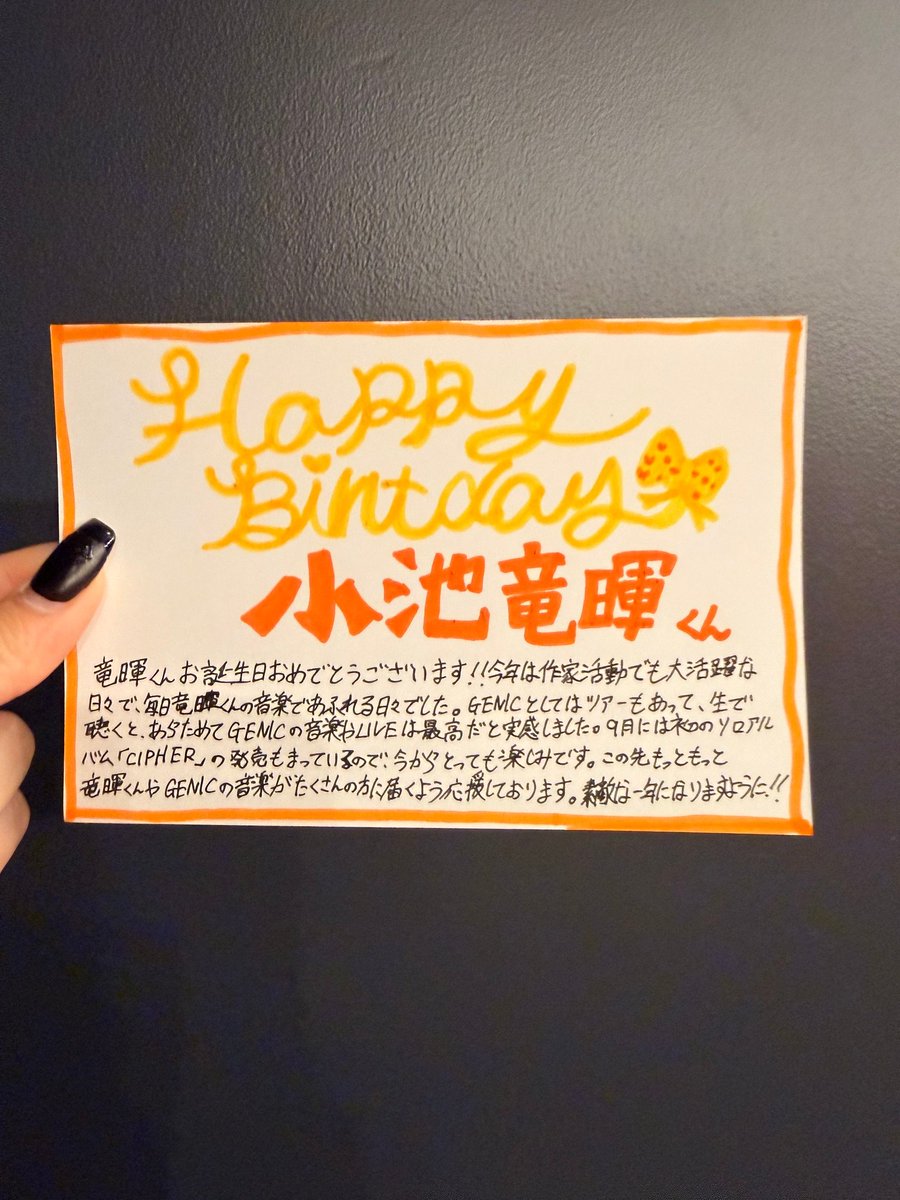 Happy
Bintday
小池竜暉くん
竜暉くんお誕生日おめでとうございます!!今年は作家活動でも大活躍な
日々で、毎日竜暉くんの音楽であふれる日々でした。GENICとしてはツアーもあって、生で
聴くと、あらためてGENICの音楽やLIVEは最高だと実感しました。9月には初のソロアル
バム「CIPHER」の発売もまっているので、今からとっても楽しみです。この先もっともっと
竜暉くんやGENICの音楽がたくさんの方に届くよう応援しております。素敵な一年になりますように!!